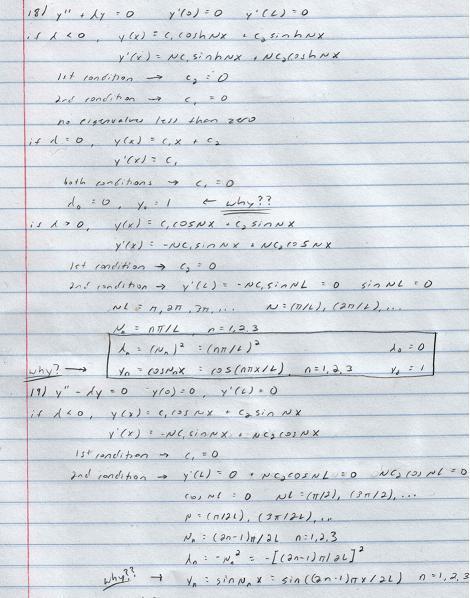 18) y'' + λy = 0 y'(0) = 0 y'(L) = 0
if λ < 0, y(x) = c₁coshNx + c₂sinhNx
y'(x) = Nc₁sinhNx + Nc₂coshNx
1st condition → c₂ = 0
2nd condition → c₁ = 0
no eigenvalues less than zero
if λ = 0, y(x) = c₁x + c₂
y'(x) = c₁
both conditions → c₁ = 0
λ₀ = 0, y₀ = 1 ← why??
if λ > 0, y(x) = c₁cosNx + c₂sinNx
y'(x) = -Nc₁sinNx + Nc₂cosNx
1st condition → c₂ = 0
2nd condition → y'(L) = -Nc₁sinNL = 0 sinNL = 0
NL = π, 2π, 3π, ... N = (π/L), (2π/L), ...
Nₙ = nπ/L, n = 1,2,3
λₙ = (Nₙ)² = (nπ/L)² λ₀ = 0
why? → yₙ = cosNₙx = cos(nπx/L), n = 1,2,3 y₀ = 1
19) y'' - λy = 0 y(0) = 0, y'(L) = 0
if λ < 0, y(x) = c₁cos Nx + c₂ sin Nx
y'(x) = -Nc₁sinNx + Nc₂cosNx
1st condition → c₁ = 0
2nd condition → y'(L) = 0 + Nc₂cosNL = 0 Nc₂cos NL = 0
cos NL = 0 NL = (π/2), (3π/2), ...
N = (π/2L), (3π/2L), ...
Nₙ = (2n-1)π/2L n = 1,2,3
λₙ = -Nₙ² = -[(2n-1)π/2L]²
why?? → yₙ = sinNₙx = sin((2n-1)πx/2L) n = 1,2,3